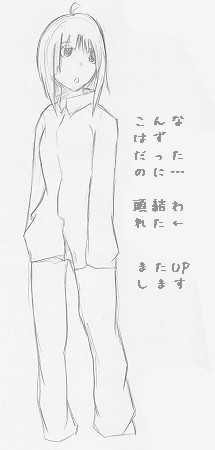 こんな
はず
だった
のに…
頭結わ
れた←
またUP
します